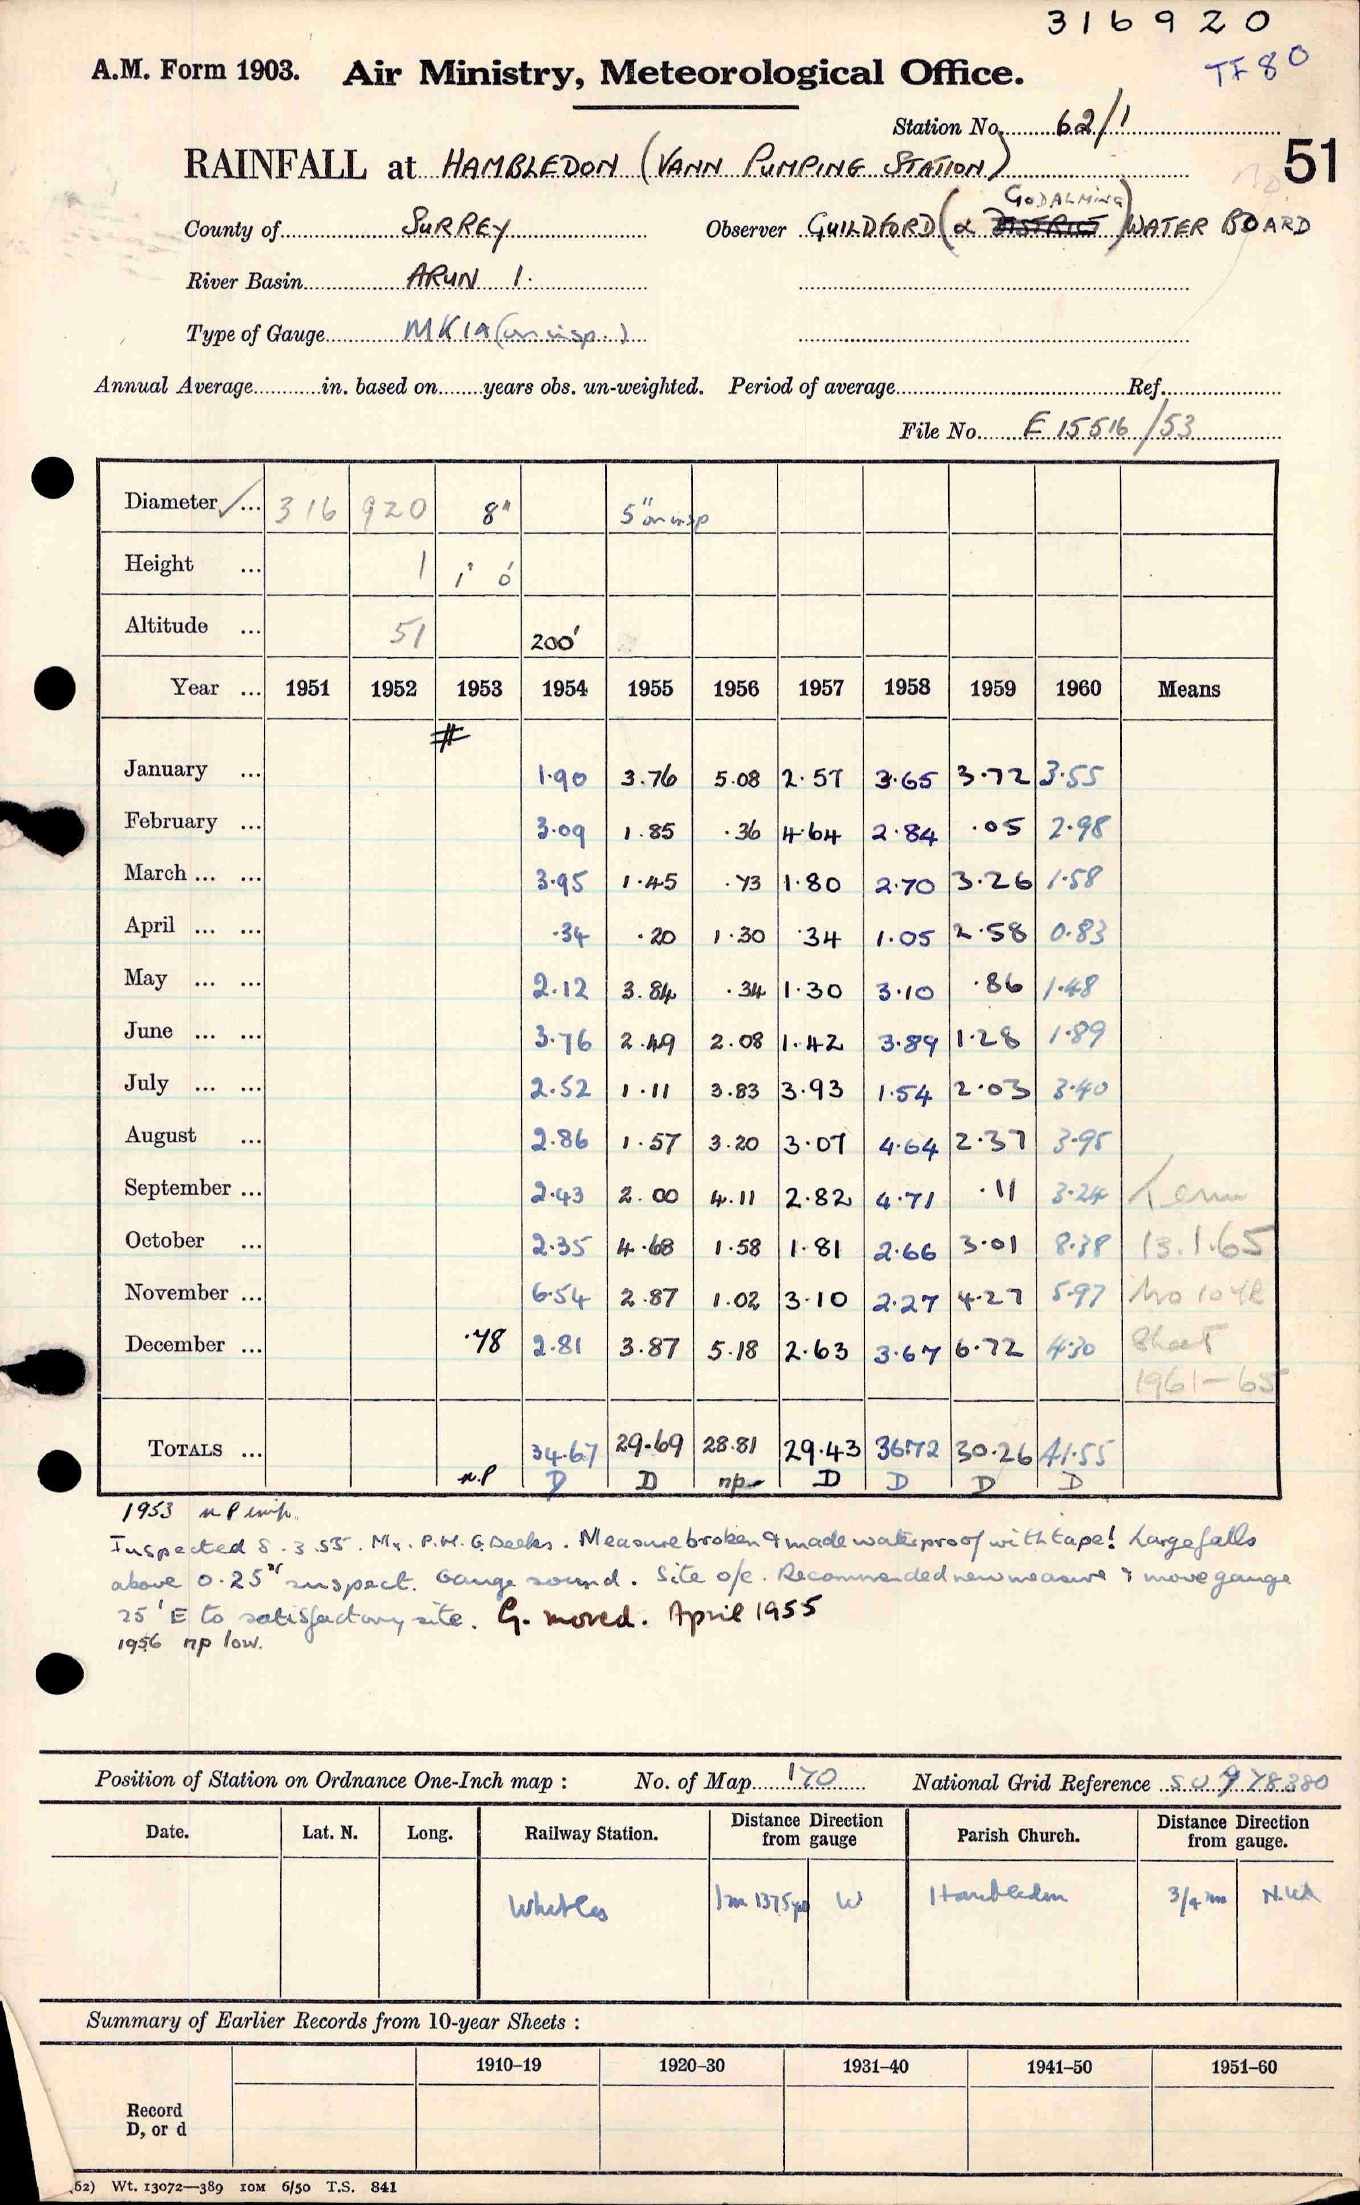 316920
TF80
A.M. Form 1903. Air Ministry, Meteorological Office.
Station No. 62/1
51
RAINFALL at HAMBLEDON (VANN PUMPING STATION)
GODALMING
County of SURREY Observer GUILDFORD (& DISTRICT) WATER BOARD
River Basin ARUN 1.
Type of Gauge MK1A (on insp.)
Annual Average in. based on years obs. un-weighted. Period of average Ref.
File No. E 15516/53
Diameter ✓ ... 316 920 8" 5" on insp
Height ... 1 1' 0"
Altitude ... 51 200'
Year ... 1951 1952 1953 1954 1955 1956 1957 1958 1959 1960 Means
#
January ... 1.90 3.76 5.08 2.57 3.65 3.72 3.55
February ... 3.09 1.85 .36 4.64 2.84 .05 2.98
March ... ... 3.95 1.45 .73 1.80 2.70 3.26 1.58
April ... ... .34 .20 1.30 .34 1.05 2.58 0.83
May ... ... 2.12 3.84 .34 1.30 3.10 .86 1.48
June ... ... 3.76 2.49 2.08 1.42 3.89 1.28 1.89
July ... ... 2.52 1.11 3.83 3.93 1.54 2.03 3.40
August ... 2.86 1.57 3.20 3.07 4.64 2.37 3.95
September ... 2.43 2.00 4.11 2.82 4.71 .11 3.24
October ... 2.35 4.68 1.58 1.81 2.66 3.01 8.38 13.1.65
November ... 6.54 2.87 1.02 3.10 2.27 4.27 5.97 No 10 YR
December ... .78 2.81 3.87 5.18 2.63 3.67 6.72 4.30 Sheet
1961-65
TOTALS ... 34.67 29.69 28.81 29.43 36.72 30.26 41.55
n.P D D np D D D D
1953 n P
Inspected 8.3.55. Mr. P.H.G. Deeks. Measure broken & made waterproof with tape! Large falls
above 0.25" suspect. Gauge sound. Site o/e. Recommended new measure & move gauge
25' E to satisfactory site. G. moved. April 1955
1956 np low.
Position of Station on Ordnance One-Inch map : No. of Map 170 National Grid Reference SU 978380
Date. Lat. N. Long. Railway Station. Distance Direction from gauge Parish Church. Distance Direction from gauge.
1m 1375yd W Hambledon 3/4 m N.W
Summary of Earlier Records from 10-year Sheets :
1910–19 1920–30 1931–40 1941–50 1951–60
Record
D, or d
62) Wt. 13072—389 10M 6/50 T.S. 841